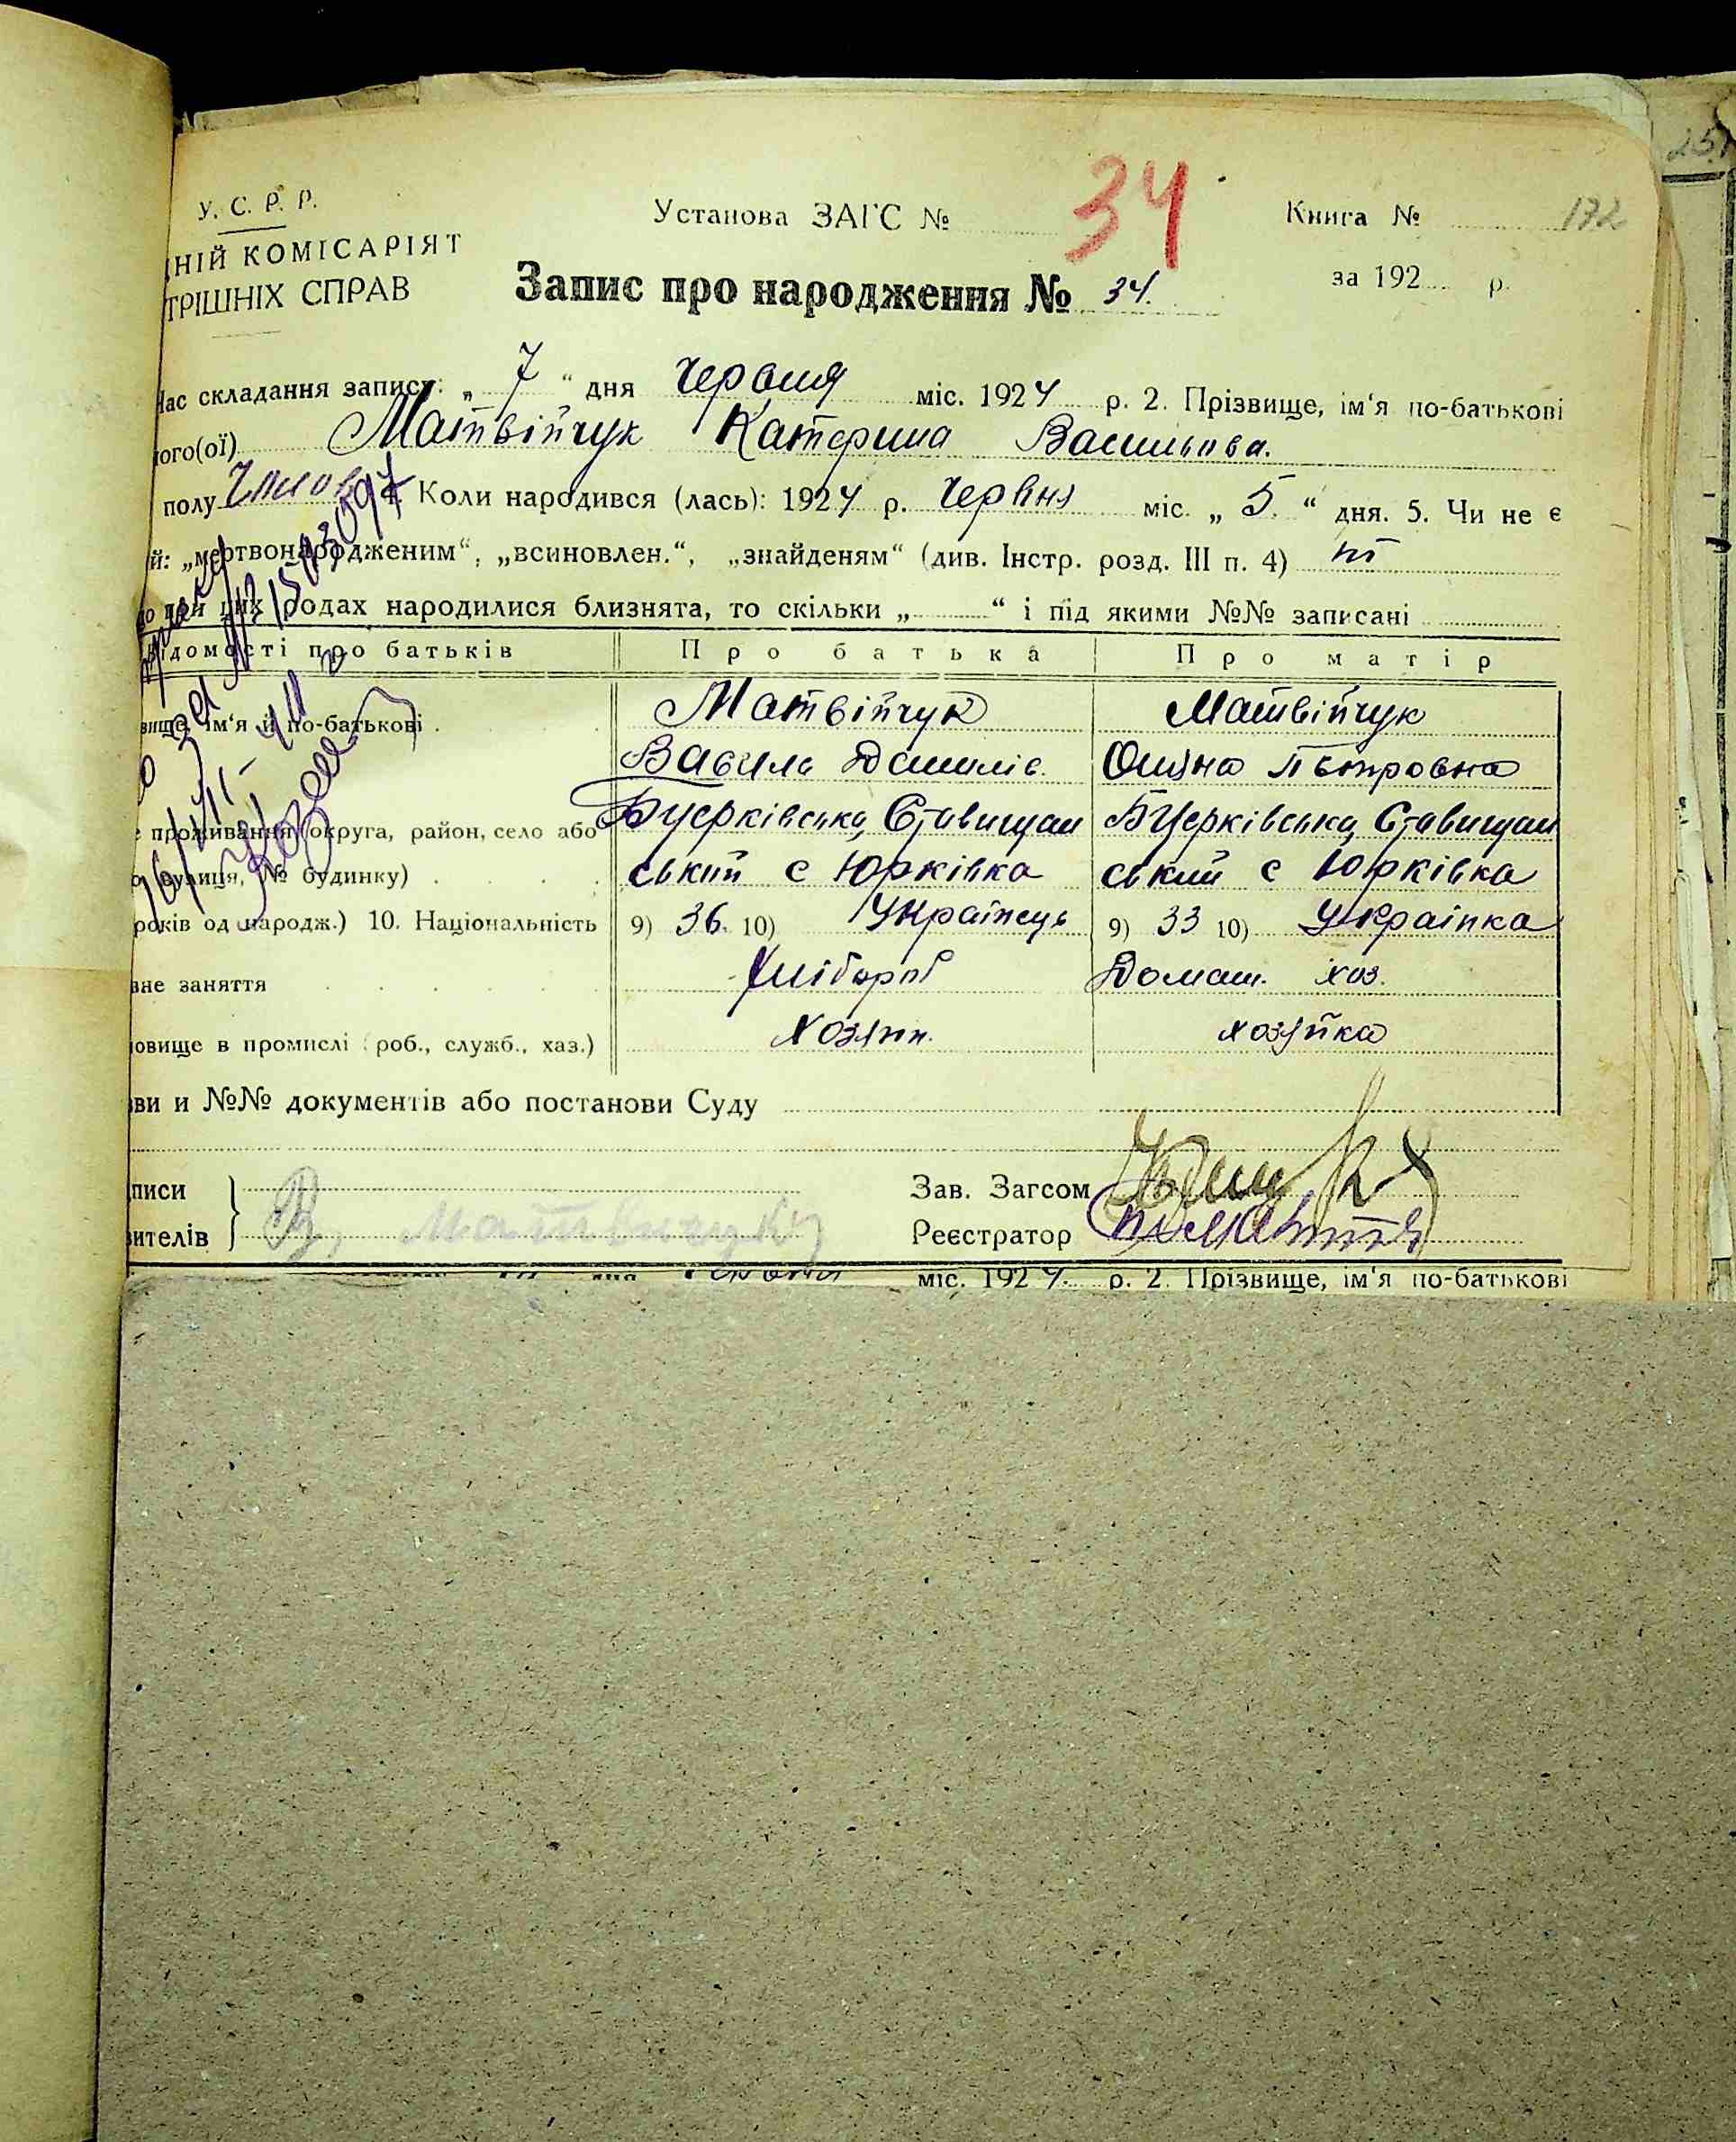 У. С. Р. Р.
Установа ЗАГС № 34
Книга № 172
НІЙ КОМІСАРІЯТ
ТРІШНІХ СПРАВ
Запис про народження № 34.
за 192 р.
Час складання запису: „ 7 “ дня Червня міс. 1924 р. 2. Прізвище, ім‘я по-батькові
ного(ої) Матвійчук Катерина Васильова.
полу 4. Коли народився (лась): 1924 р. Червня міс. „ 5. “ дня. 5. Чи не є
й: „мертвонародженим“, „всиновлен.“, „знайденям“ (див. Інстр. розд. III п. 4) ні
що при цих родах народилися близнята, то скільки „ “ і під якими №№ записані
відомості про батьків Про батька Про матір
вище, ім‘я й по-батькові Матвійчук Матвійчук
Василь Данилів Петровна
е проживання (округа, район, село або Буерківська, Ставищан Буерківська, Ставищан
вулиця, № будинку) ський с Юрківка ський с Юрківка
років од народж.) 10. Національність 9) 36. 10) Українець 9) 33 10) Українка
вне заняття Хлібороб Домаш. хоз.
овище в промислі (роб., служб., хаз.) Хозяин. хозяйка
ви и №№ документів або постанови Суду
писи
вителів } В. Матвийчук
Зав. Загсом
Реєстратор
міс. 1924. р. 2. Прізвище, ім‘я по-батькові